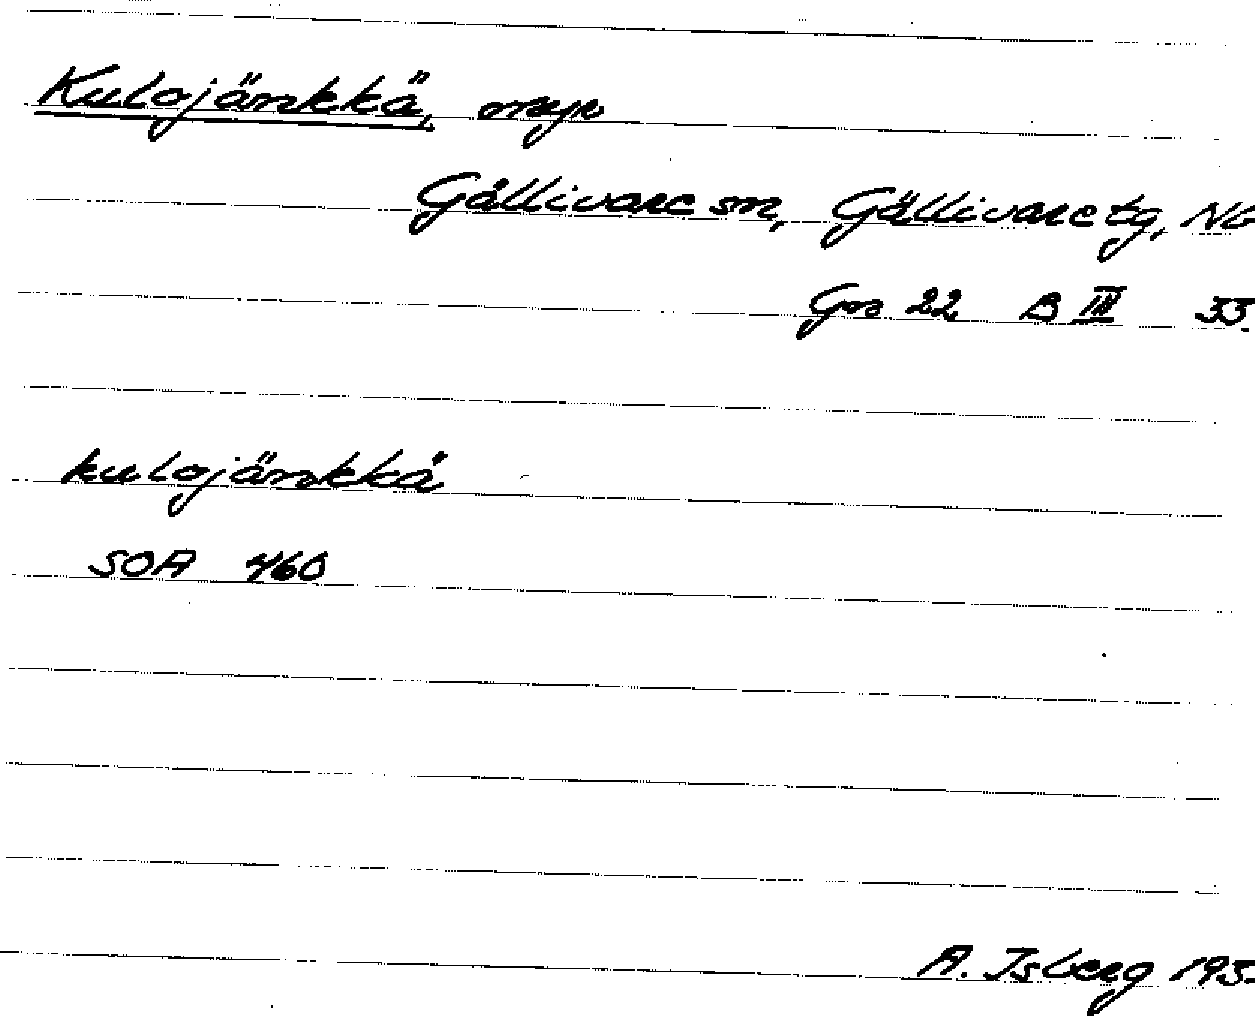 Kulojänkkä, myr
Gällivare sn, Gällivare tg, Nb
Gos 22 B III 33.
kulojänkkä
SOA 460
A. Isberg 193